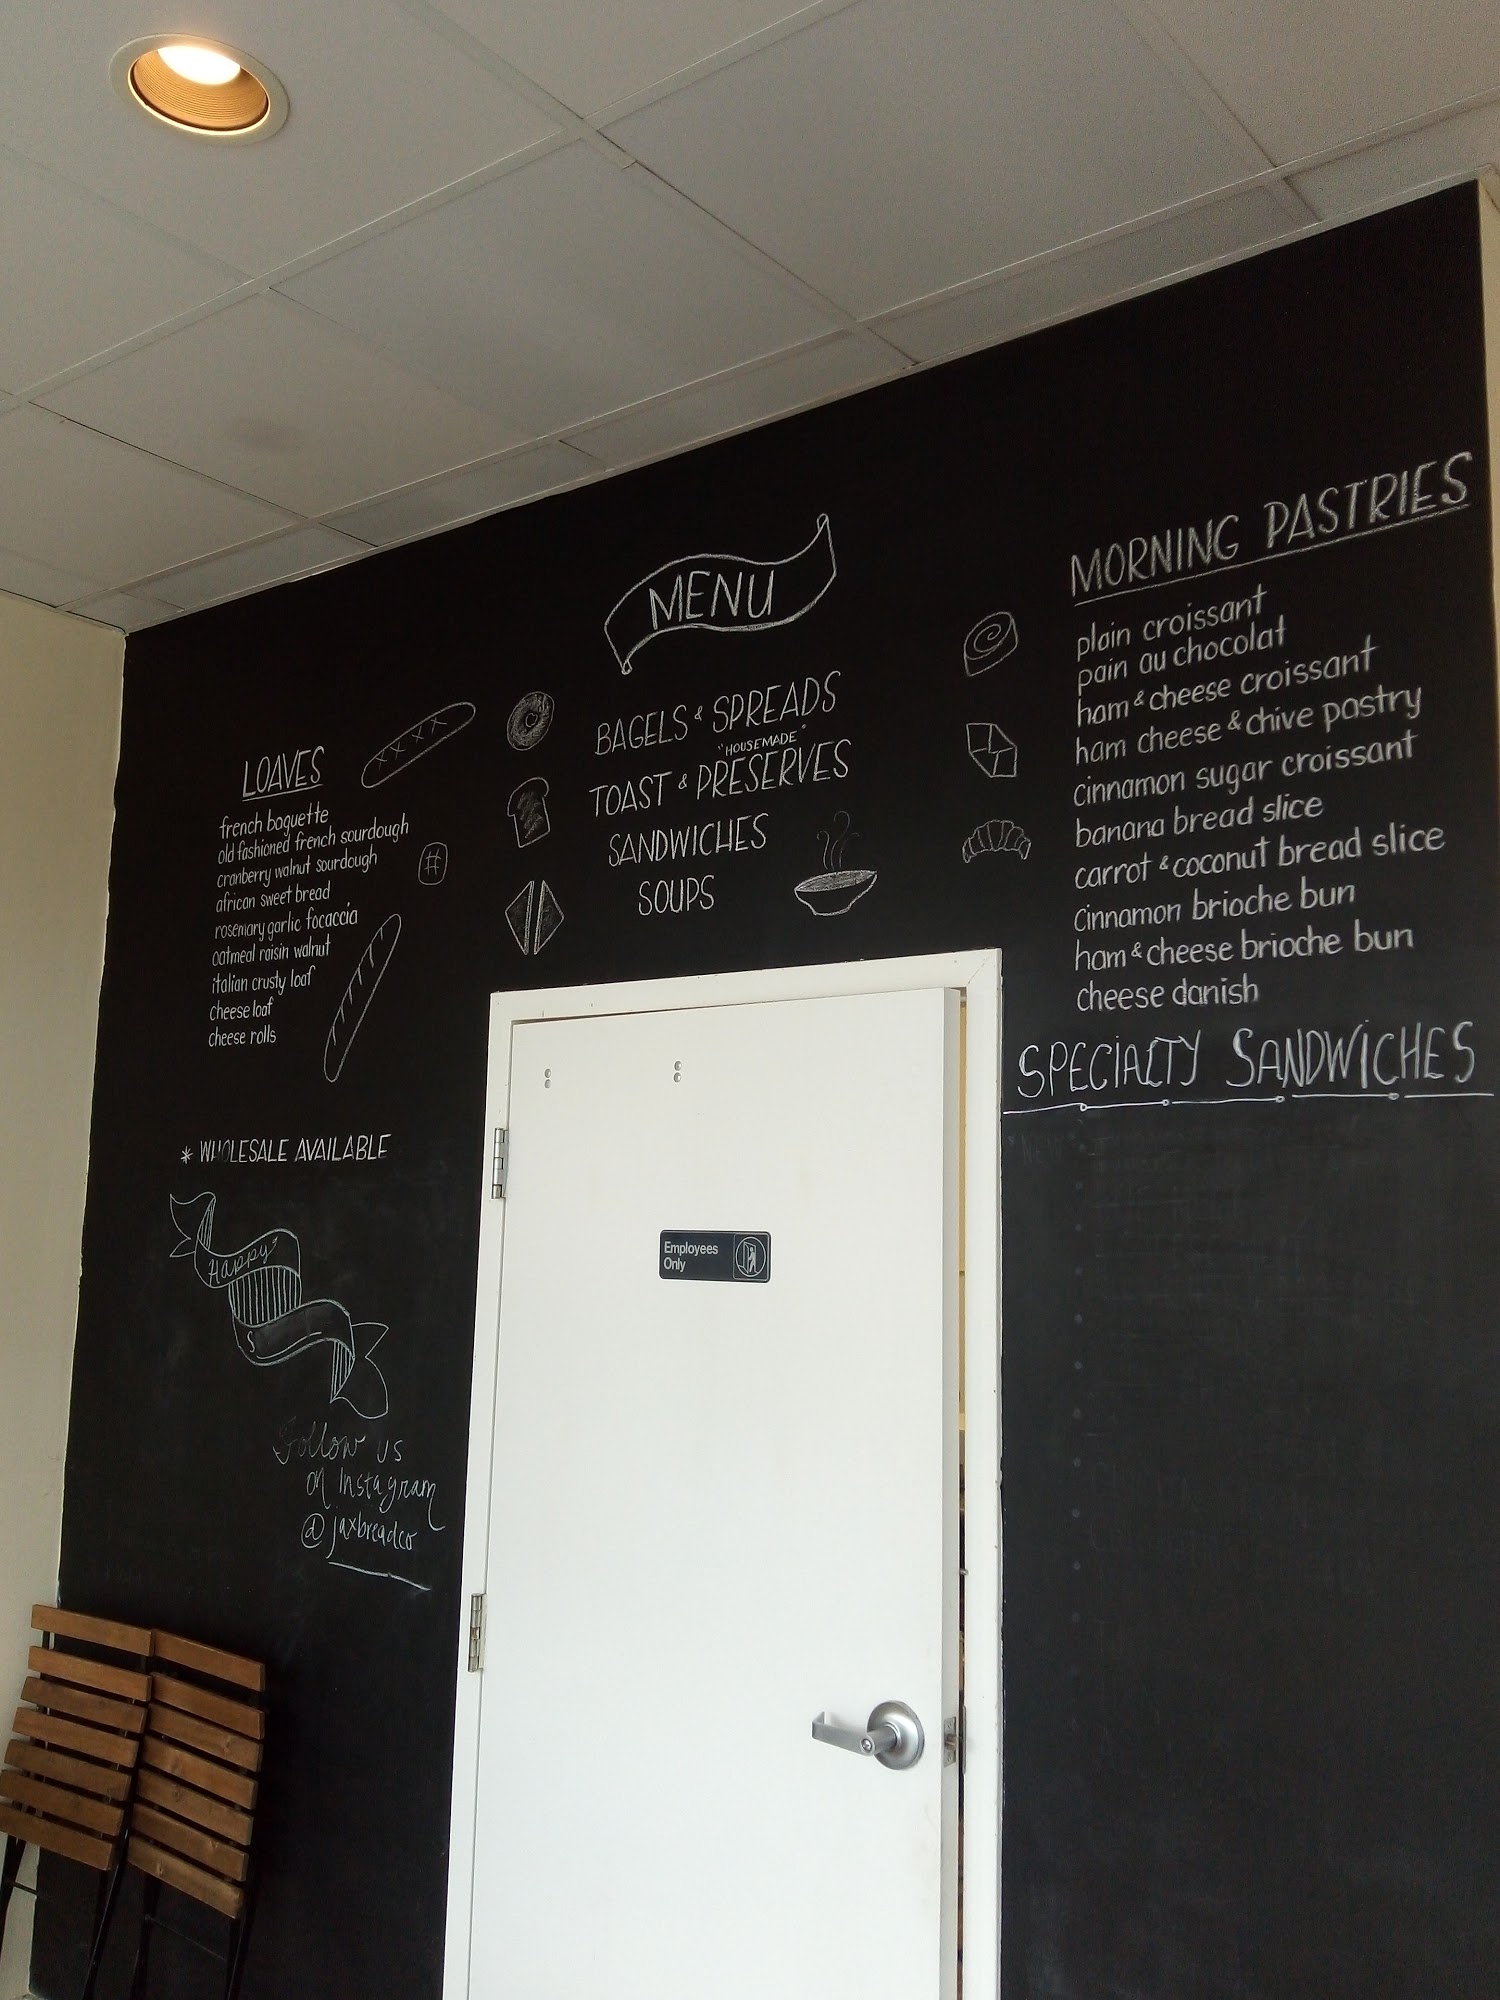 MENU
BAGELS & SPREADS
"HOUSEMADE"
TOAST & PRESERVES
SANDWICHES
SOUPS
LOAVES
french baguette
old fashioned french sourdough
cranberry walnut sourdough
african sweet bread
rosemary garlic focaccia
oatmeal raisin walnut
italian crusty loaf
cheese loaf
cheese rolls
* WHOLESALE AVAILABLE
Happy
S
Follow us
on Instagram
@jaxbreadco
MORNING PASTRIES
plain croissant
pain au chocolat
ham & cheese croissant
ham cheese & chive pastry
cinnamon sugar croissant
banana bread slice
carrot & coconut bread slice
cinnamon brioche bun
ham & cheese brioche bun
cheese danish
SPECIALTY SANDWICHES
Employees
Only